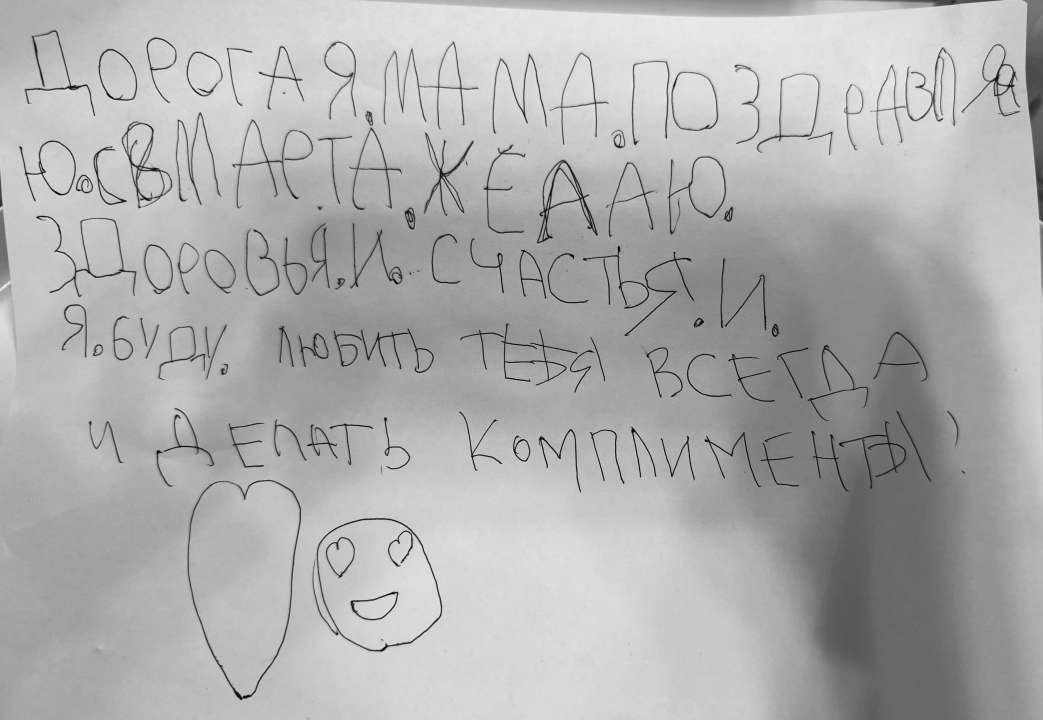 ДОРОГАЯ.МАМА.ПОЗДРАВЛЯ
Ю.С8МАРТА.ЖЕЛАЮ.
ЗДОРОВЬЯ.И. СЧАСТЬЯ.И.
Я.БУДУ. ЛЮБИТЬ ТЕБЯ ВСЕГДА
И ДЕЛАТЬ КОМПЛИМЕНТЫ!